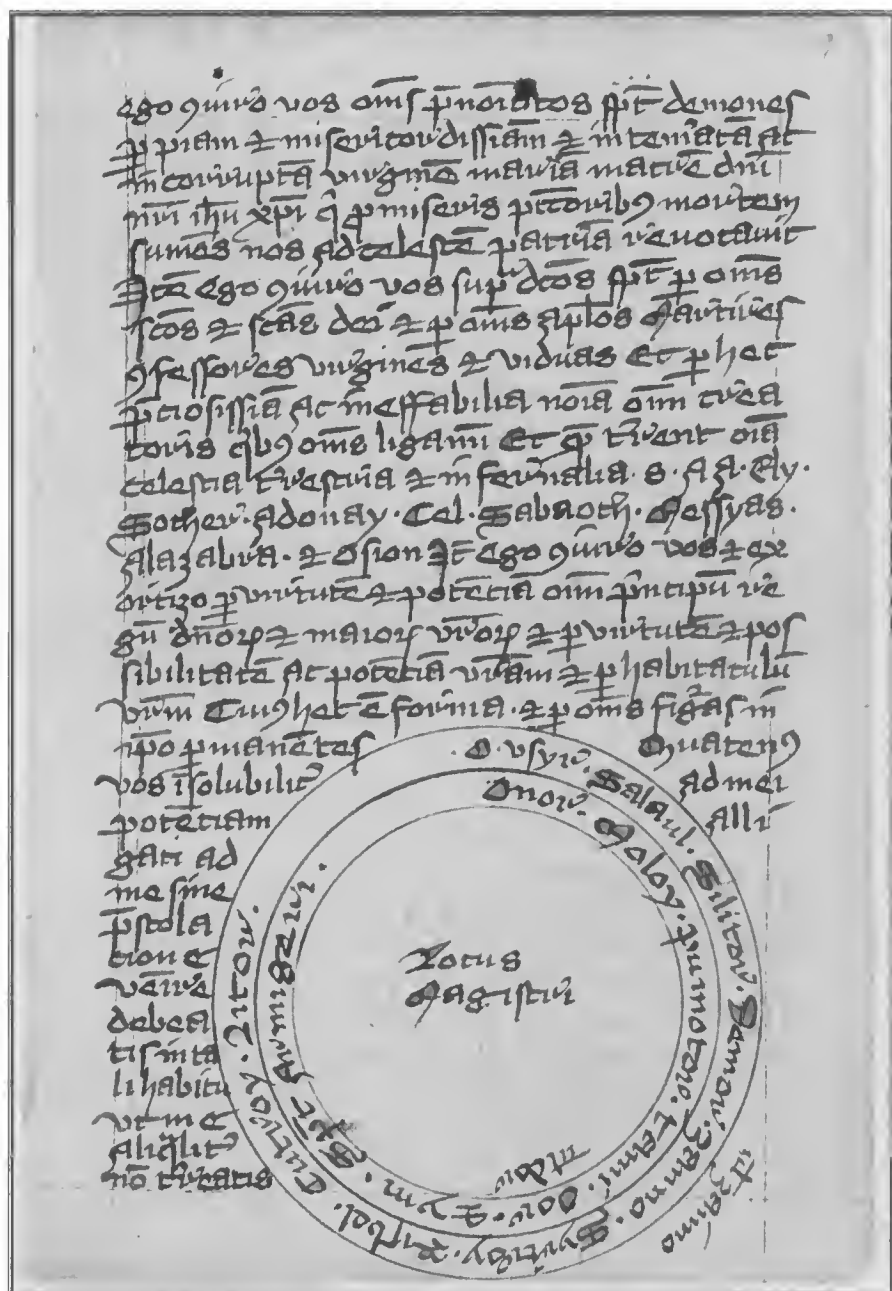 ego ꝯiuro vos om̄s p̄noīatos sp̄t demones
ꝑ piam et misericordissiam̄ et intem̄atā ac
incorruptā virginē mariā matrē dn̄i
nr̄i ih̄u xp̄i q̄ ꝓ miseris pc̄c̄oribꝯ mortem
sumēs nos ad celestē patriā revocavit
Itē Ego ꝯiuro vos sup̄ dc̄os sp̄t ꝑ om̄s
sc̄os et sc̄as dei et ꝑ om̄s apl̄os Martires
ꝯfessores virgines et viduas Et ꝑ hec
p̄ciosissiā ac ineffabilia noīa oīm crea
toris q̄bꝯ om̄s ligamī Et q̄ t̄rent oīa
celestia t̄restria et infernalia · s · Aa · Ely ·
Sother · Adonay · Cel · Sabaoth · Messyas ·
Alazabra · et Osion Itē Ego ꝯiuro vos et ex
orcizo ꝑ virtutē et potēciā oīm p̄ncipū re
gū dn̄oꝝ et maioꝝ vr̄oꝝ et ꝑ virtutē et pos
sibilitatē ac potēciā vr̄am et ꝑ habitaculū
vr̄m Cuiꝯ hec ē forma · et ꝑ om̄s fiḡas in
ip̄o ꝑmanētes Quatenꝯ
vos īsolubilit̄ ad mei
potēciam alli
gati ad
me sine
p̄stola
cione
venire
debea
tis in ta
li habitu
vt me
aliq̄lit̄
nō t̄reatis
· O · vsyr · Salaul · Silitor · Demor · Zanno · Syrtroy · Risbel · Cutroy · Litor ·
Onor · Moloy · Pumotor · Tami · Dor · et · Ym · Sp̄t Armigeri ·
Locus
Magistri
ut dor
ut zanno